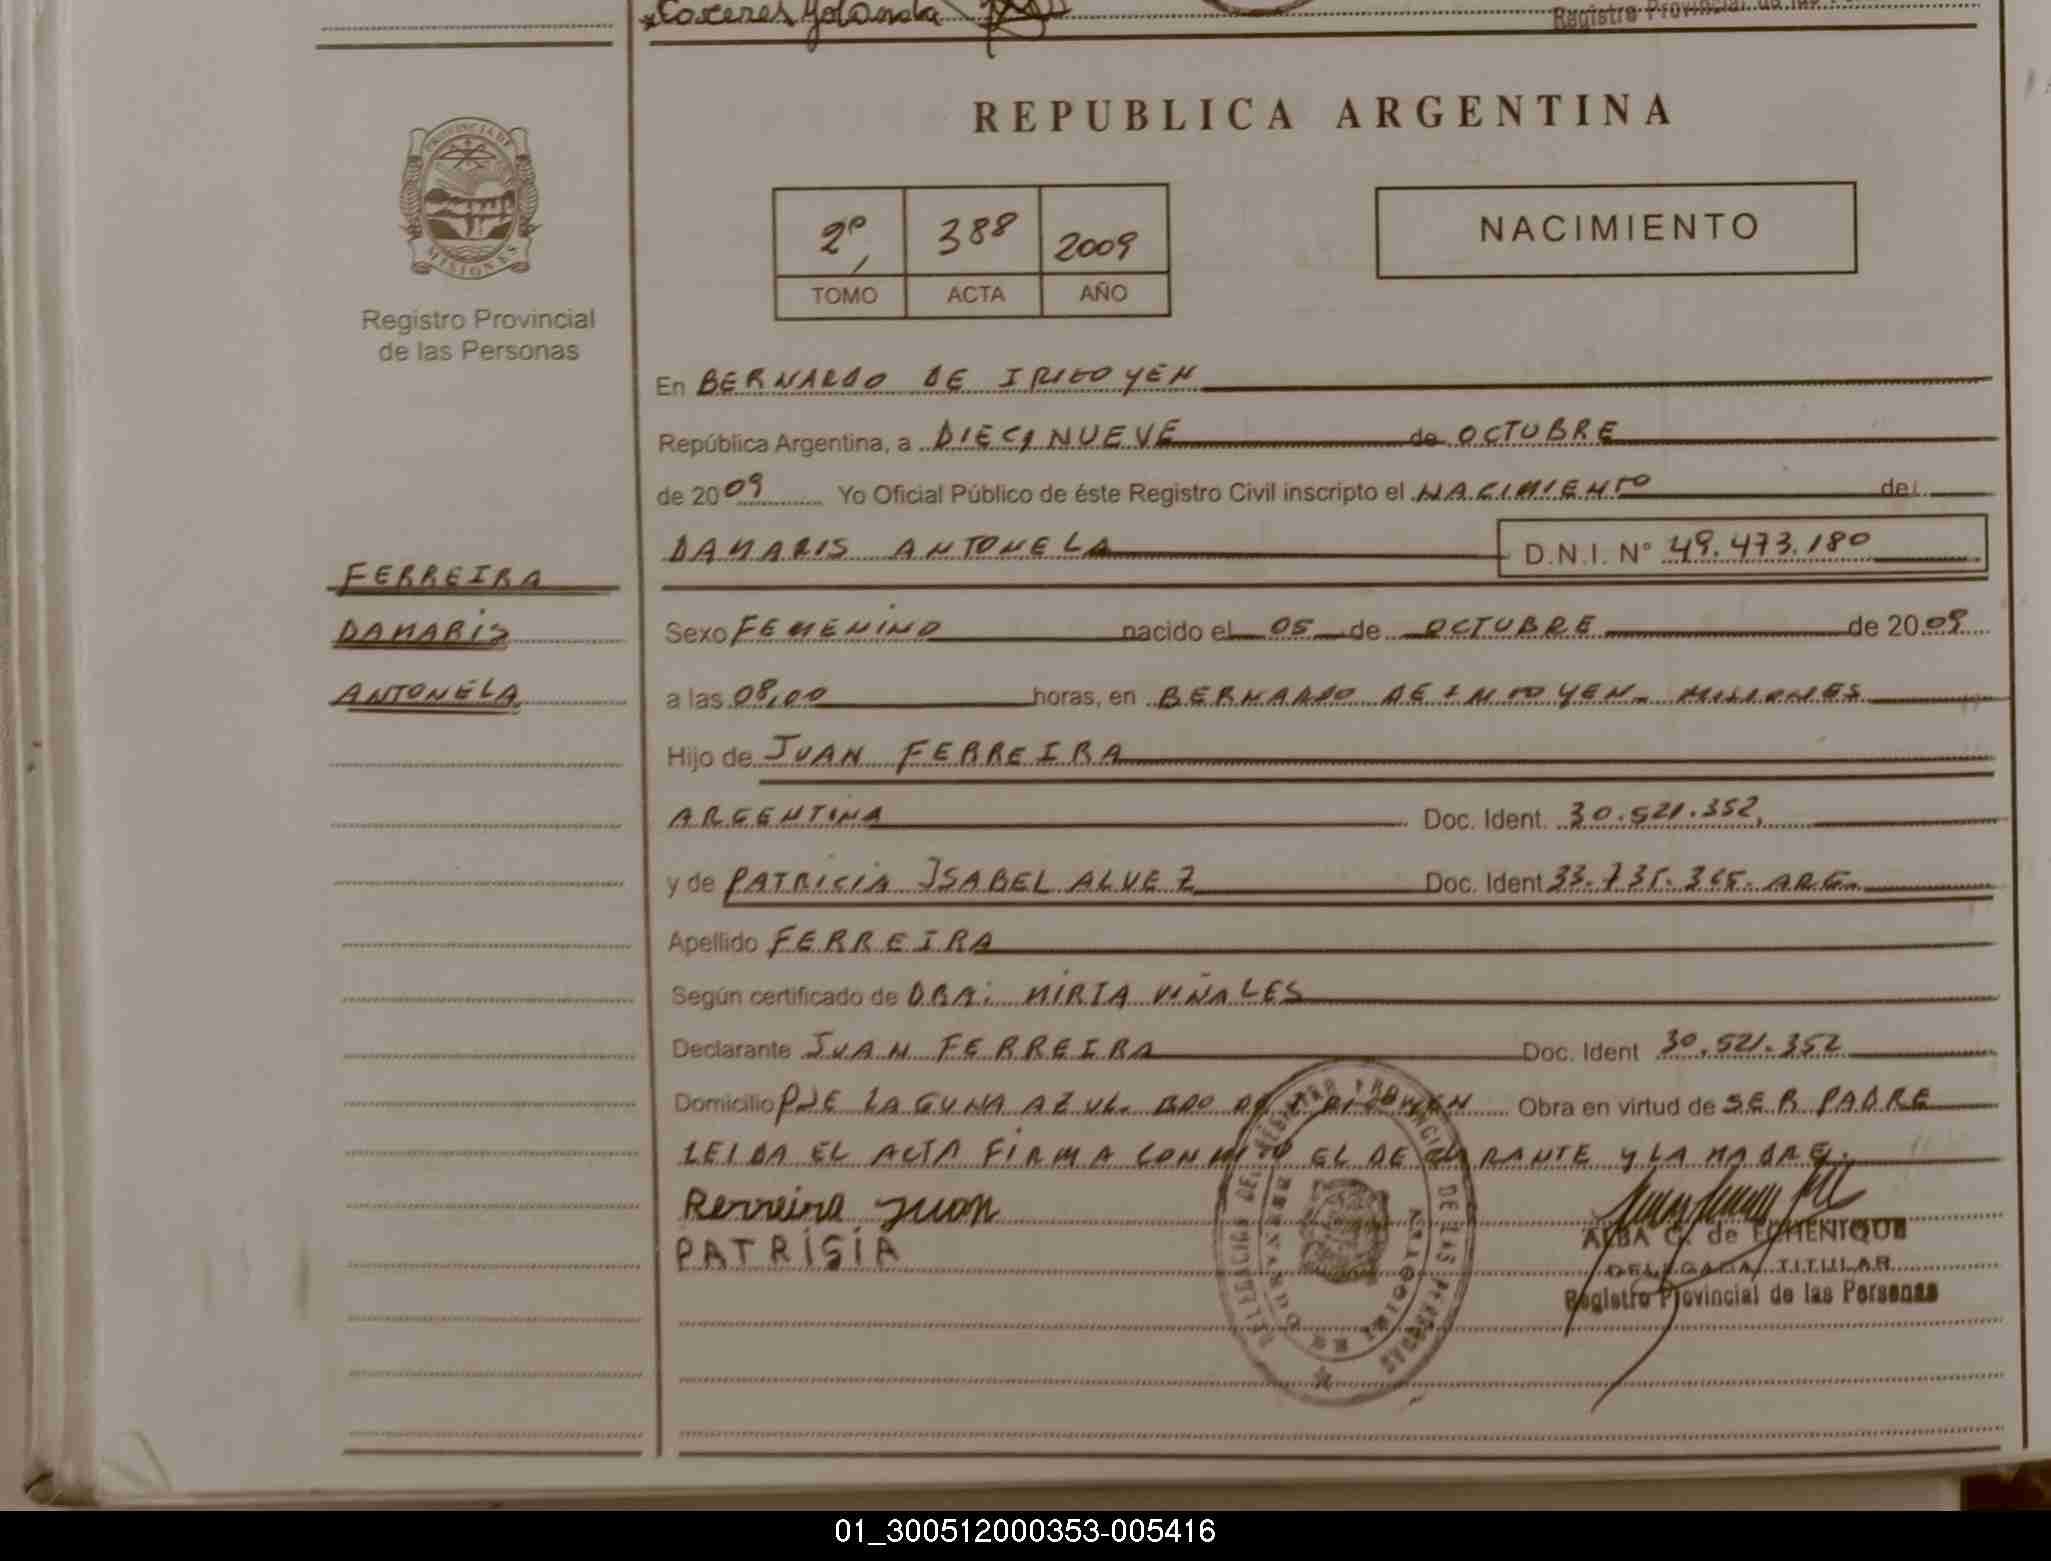 Caceres Yolanda
Registro Provincial de las
REPUBLICA ARGENTINA
PROVINCIA DE MISIONES
Registro Provincial
de las Personas
2º, 388 2009
TOMO ACTA AÑO
NACIMIENTO
En BERNARDO DE IRIGOYEN
República Argentina, a DIECINUEVE de OCTUBRE
de 2009 Yo Oficial Público de éste Registro Civil inscripto el NACIMIENTO de
DAMARIS ANTONELA D.N.I. Nº 49.473.180
FERREIRA
DAMARIS
ANTONELA
Sexo FEMENINO nacido el 05 de OCTUBRE de 2009
a las 08,00 horas, en BERNARDO DE IRIGOYEN - MISIONES
Hijo de JUAN FERREIRA
ARGENTINA Doc. Ident. 30.521.352,
y de PATRICIA ISABEL ALVEZ Doc. Ident 33.735.365. ARG.
Apellido FERREIRA
Según certificado de DRA: MIRTA VIÑALES
Declarante JUAN FERREIRA Doc. Ident 30.521.352
Domicilio PJE LAGUNA AZUL. BDO DE IRIGOYEN Obra en virtud de SER PADRE
LEIDA EL ACTA FIRMA CONMIGO EL DECLARANTE Y LA MADRE.
Ferreira Juan
PATRISIA
DELEGACION DEL REGISTRO PROVINCIAL DE LAS PERSONAS
BERNARDO DE IRIGOYEN
ALBA C. de ECHENIQUE
DELEGADA TITULAR
Registro Provincial de las Personas
01_300512000353-005416